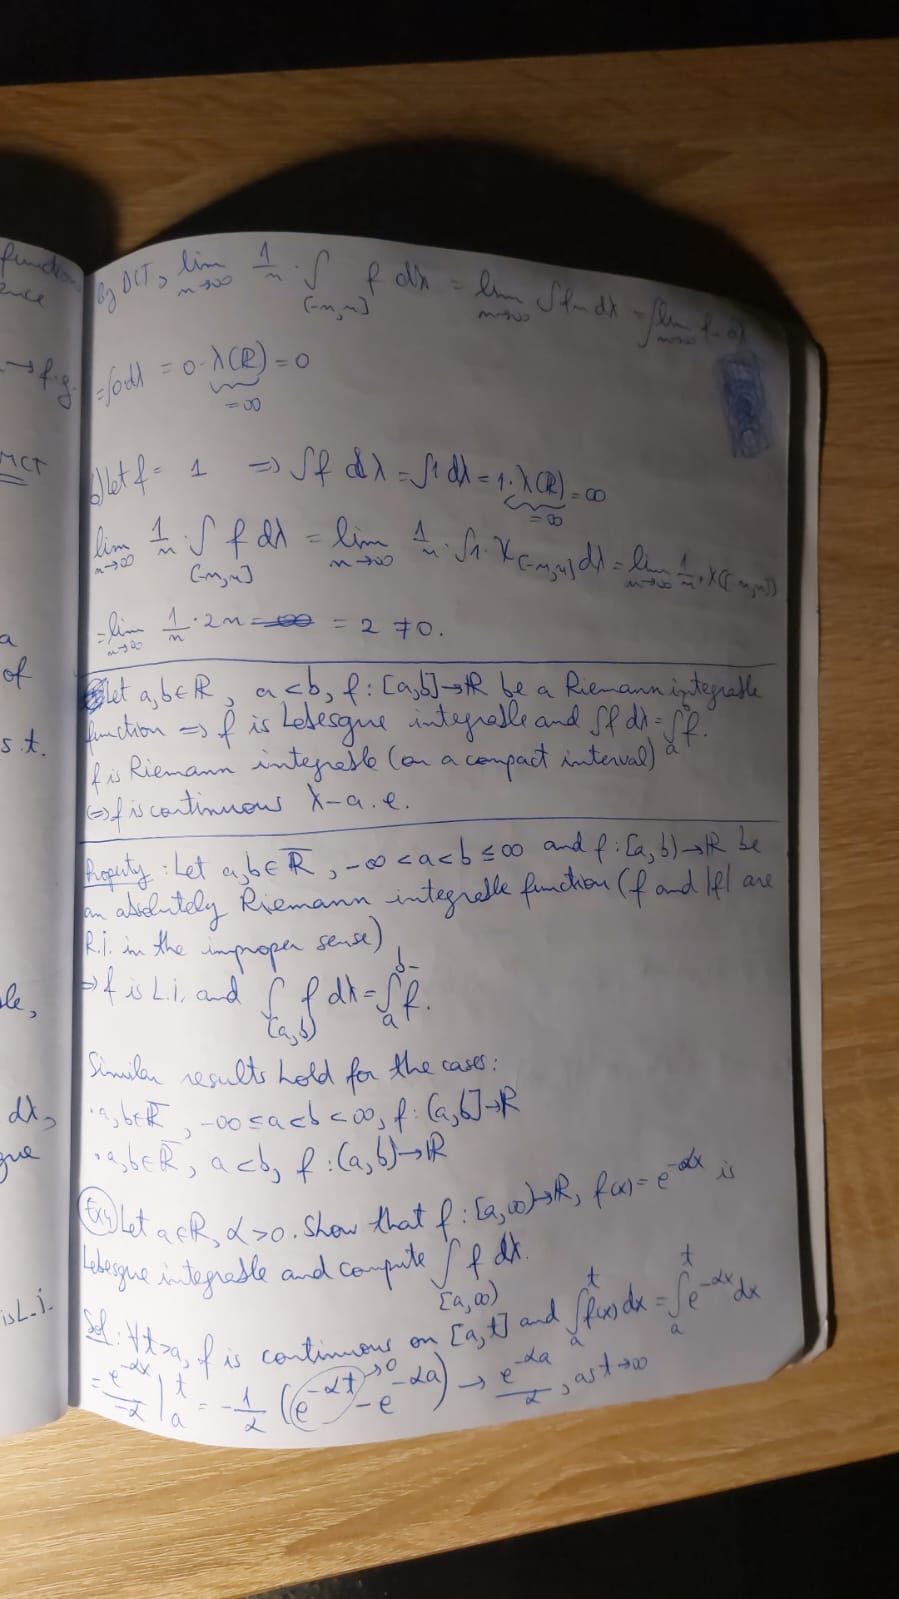 function
ence
→ f.g.
MCT
a
of
s.t.
le,
dλ,
que
is L.i.
By DCT, lim n→∞ 1/n · ∫[-n,n] f dλ = lim n→∞ ∫fn dλ = ∫lim n→∞ fn dλ
= ∫0 dλ = 0·λ(ℝ) = 0
= ∞
b) Let f = 1 => ∫f dλ = ∫1 dλ = 1·λ(ℝ) = ∞
= ∞
lim n→∞ 1/n · ∫[-n,n] f dλ = lim n→∞ 1/n · ∫1·χ[-n,n] dλ = lim n→∞ 1/n · λ([-n,n])
= lim n→∞ 1/n · 2n = 2 ≠ 0.
Let a,b∈ℝ, a<b, f:[a,b]→ℝ be a Riemann integrable
function => f is Lebesgue integrable and ∫f dλ = ∫_a^b f.
f is Riemann integrable (on a compact interval)
<=> f is continuous λ-a.e.
Property: Let a,b∈ℝ̅, -∞<a<b≤∞ and f:[a,b)→ℝ be
an absolutely Riemann integrable function (f and |f| are
R.i. in the improper sense)
=> f is L.i. and ∫[a,b) f dλ = ∫_a^{b-} f.
Similar results hold for the cases:
· a,b∈ℝ̅, -∞≤a<b<∞, f:(a,b]→ℝ
· a,b∈ℝ̅, a<b, f:(a,b)→ℝ
Let a∈ℝ, α>0. Show that f:[a,∞)→ℝ, f(x)=e^{-αx} is
Lebesgue integrable and compute ∫[a,∞) f dλ.
Sol: ∀t>a, f is continuous on [a,t] and ∫_a^t f(x)dx = ∫_a^t e^{-αx}dx
= e^{-αx}/-α |_a^t = -1/α (e^{-αt} →0 - e^{-αa}) → e^{-αa}/α, as t→∞